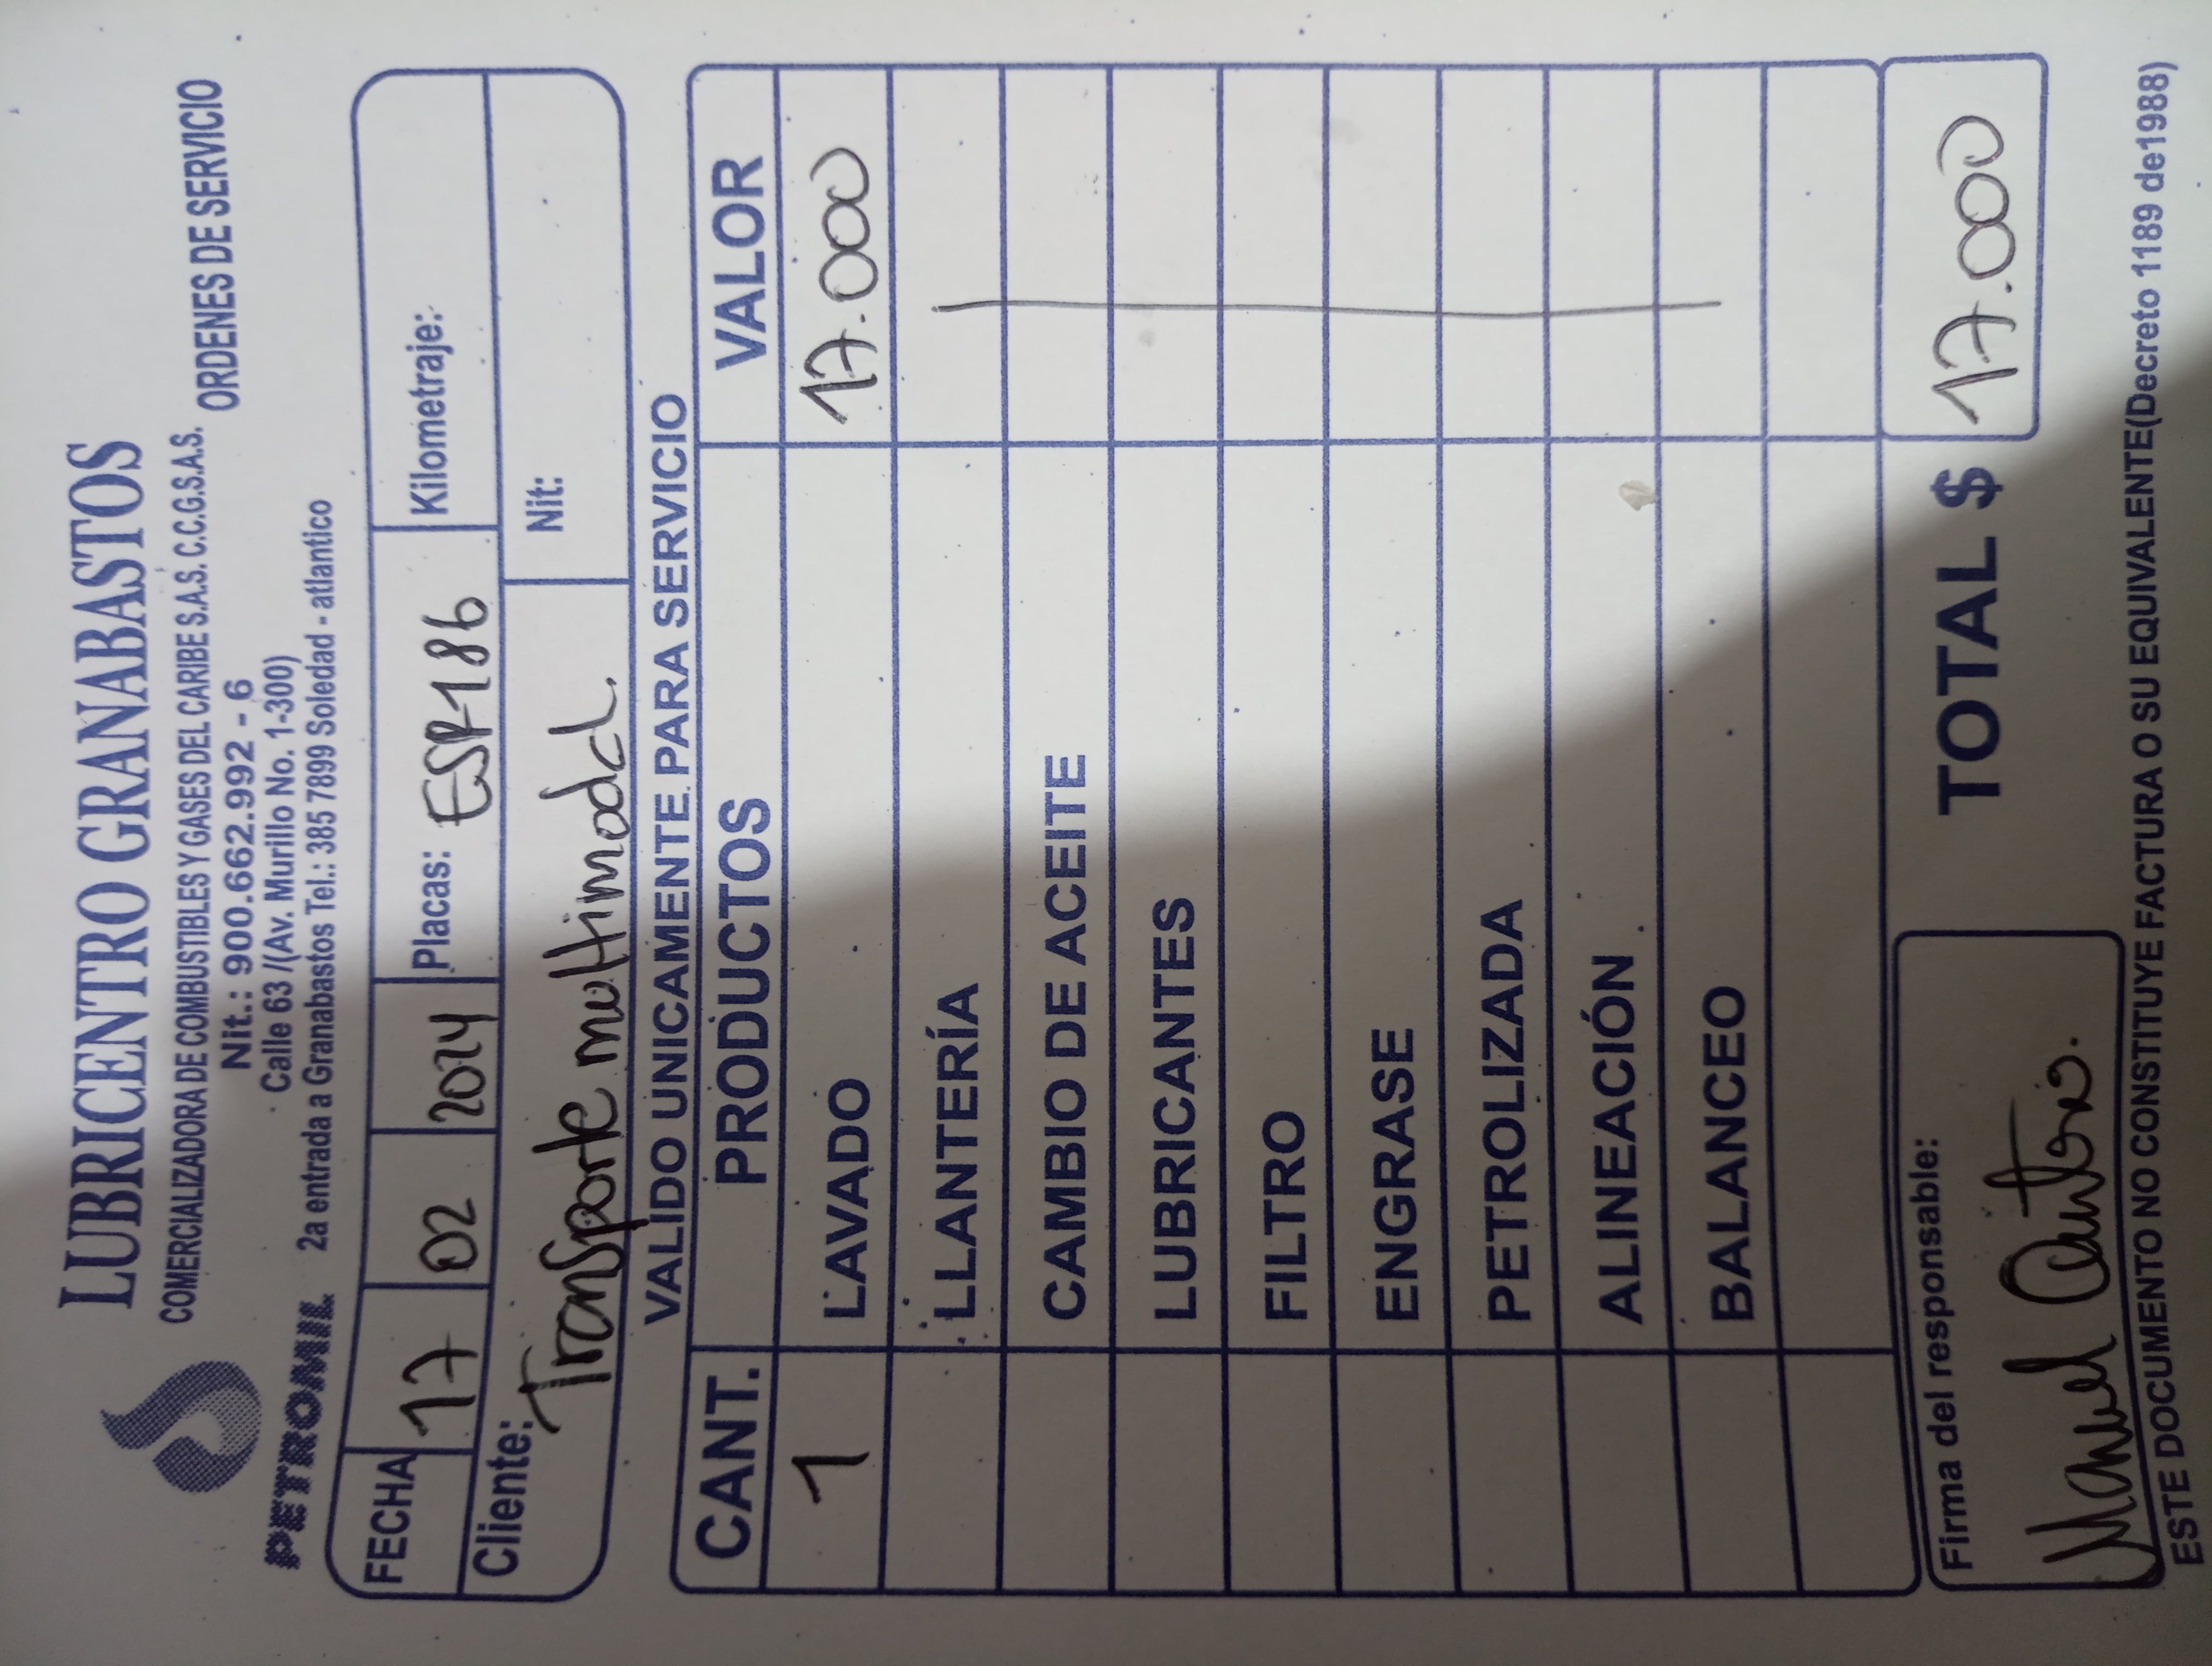 LUBRICENTRO GRANABASTOS
COMERCIALIZADORA DE COMBUSTIBLES Y GASES DEL CARIBE S.A.S. C.C.G.S.A.S.
ORDENES DE SERVICIO
Nit.: 900.662.992 - 6
Calle 63 /(Av. Murillo No. 1-300)
PETROMIL 2a entrada a Granabastos Tel.: 385 7899 Soledad - atlantico
FECHA 17 02 2024 Placas: ESR186 Kilometraje:
Cliente: Transporte multimodal. Nit:
VALIDO UNICAMENTE PARA SERVICIO
CANT. PRODUCTOS VALOR
1 LAVADO 17.000
LLANTERÍA
CAMBIO DE ACEITE
LUBRICANTES
FILTRO
ENGRASE
PETROLIZADA
ALINEACIÓN
BALANCEO
Firma del responsable: TOTAL $ 17.000
Manuel
ESTE DOCUMENTO NO CONSTITUYE FACTURA O SU EQUIVALENTE(Decreto 1189 de1988)